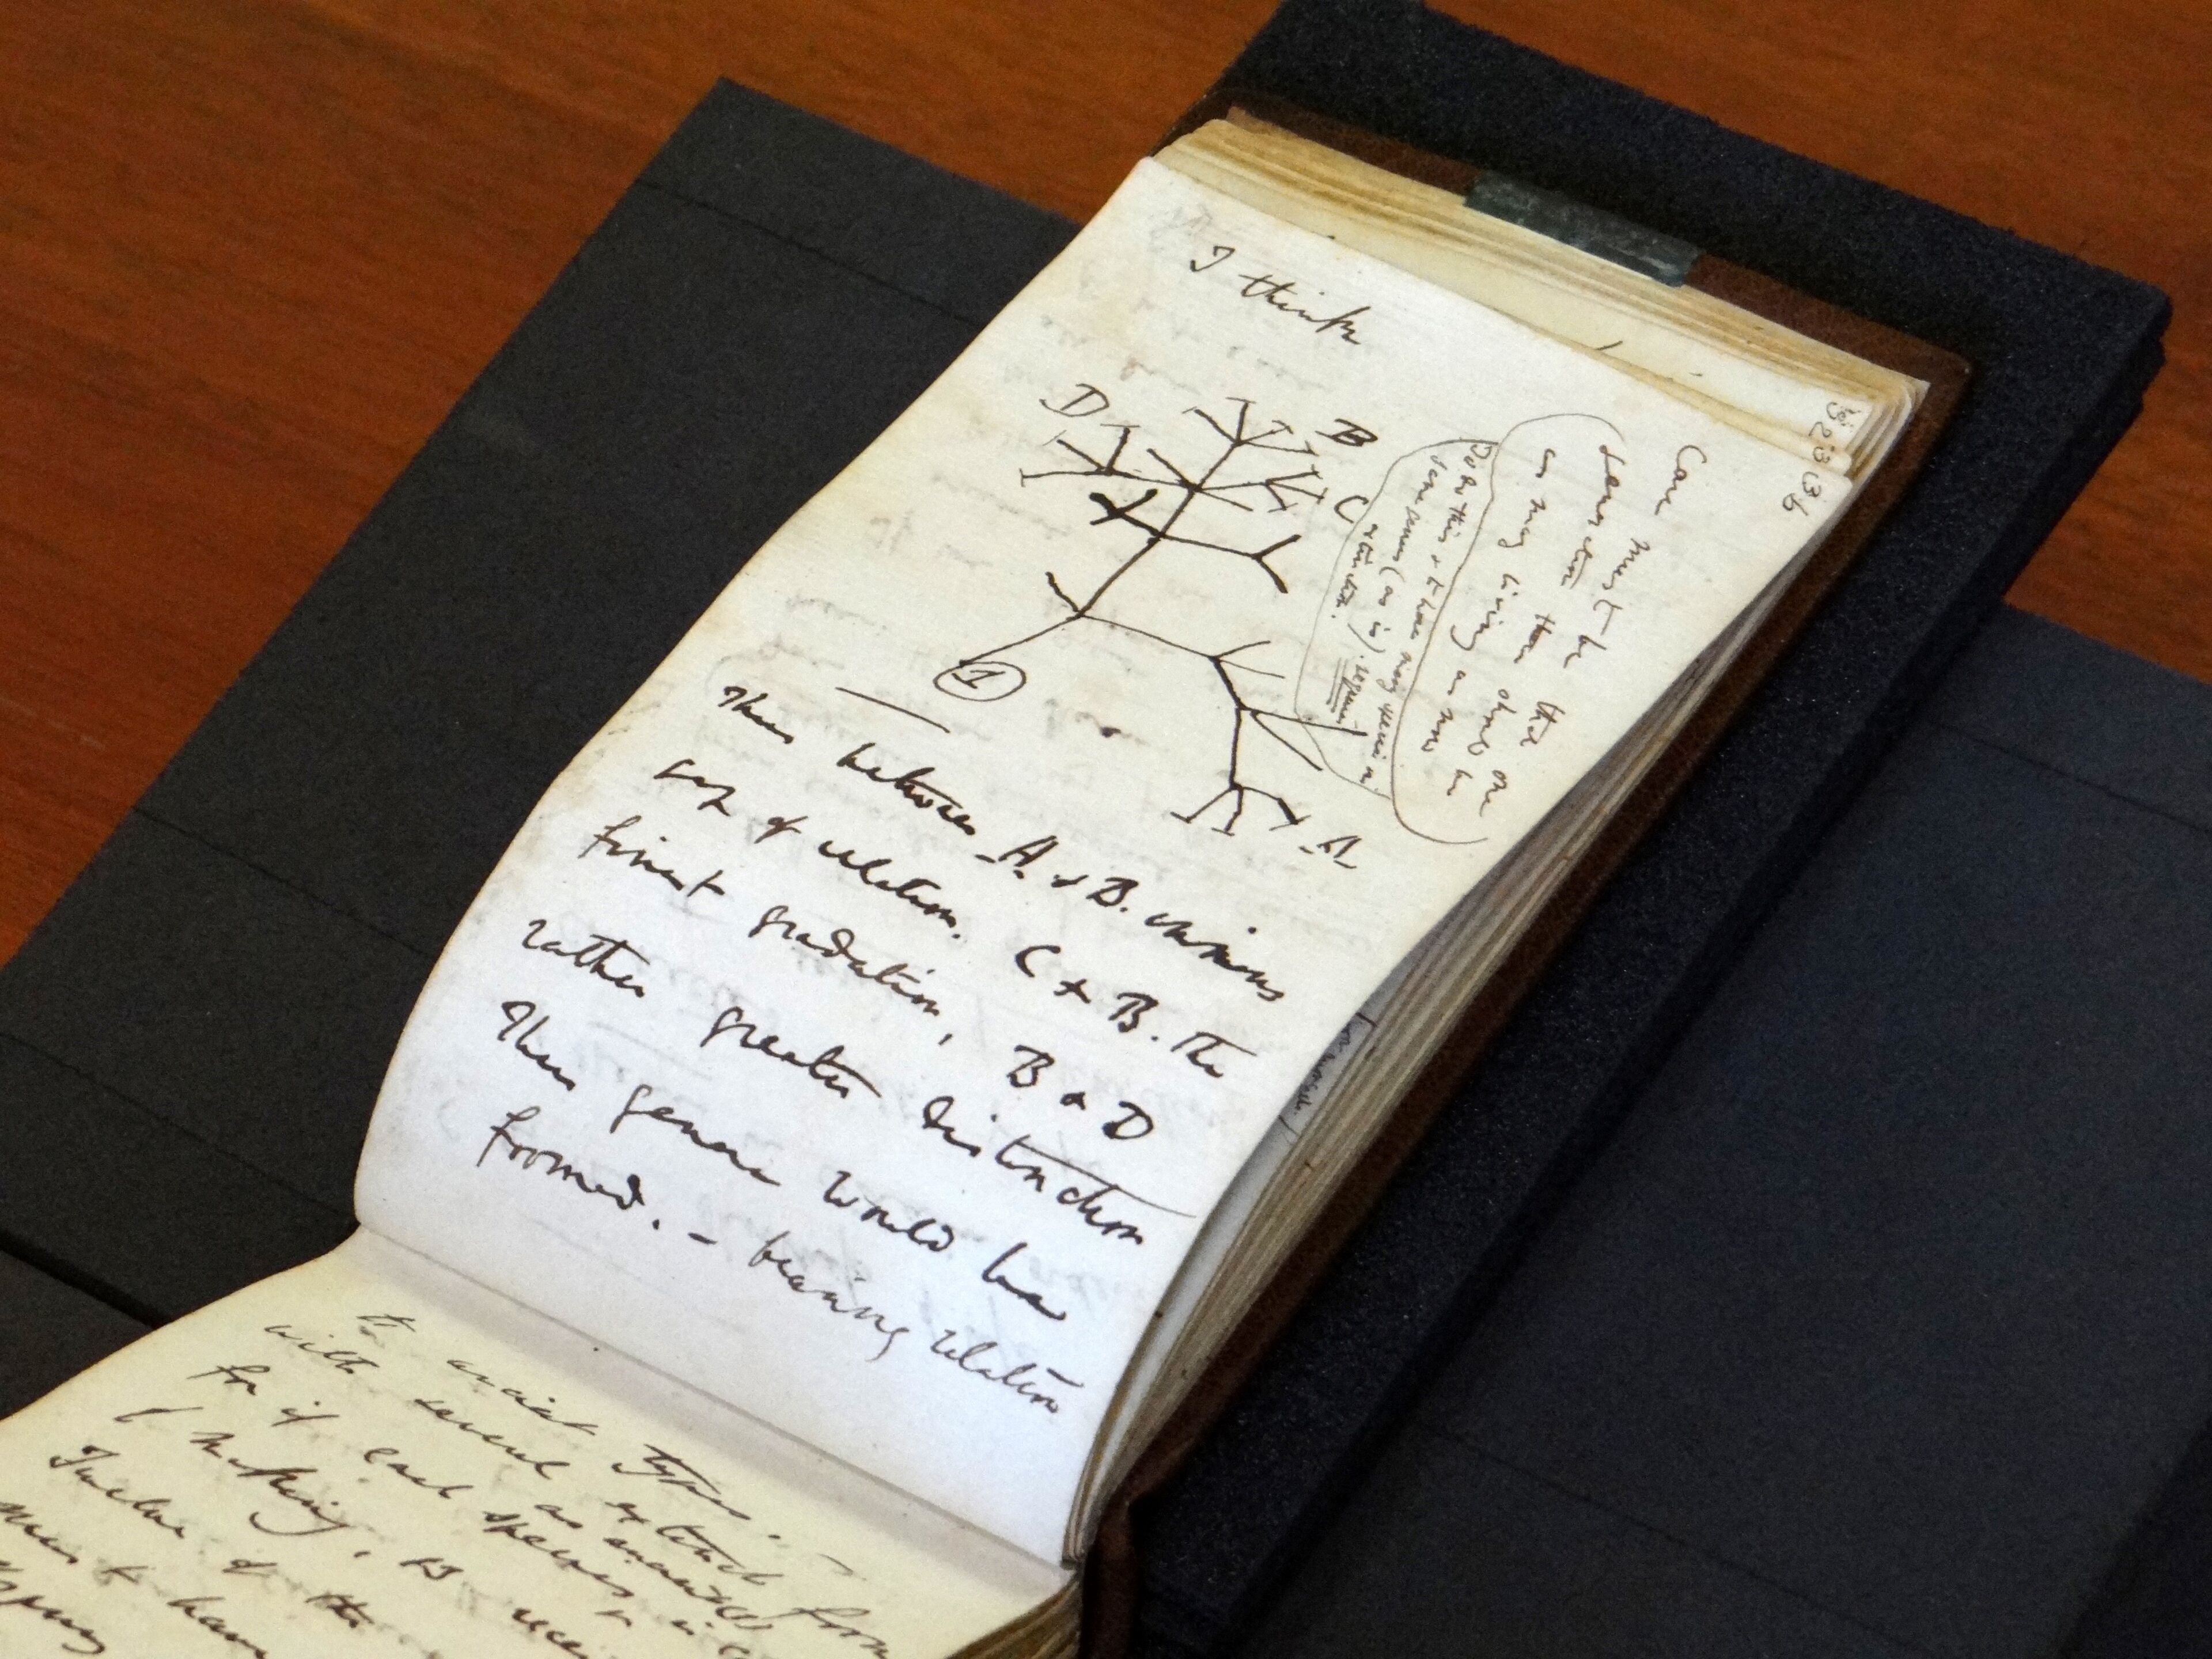 I think
D
B
C
A
1
36
Case must be that one
generation then should be
as many living as now
To do this & to have many species in
same genus (as is). requires
extinction.
Thus between A. & B. immens
gap of relation. C & B. The
finest gradation, B & D
rather greater distinction
Thus genera would be
formed. — bearing relation
to ancient types. —
with several extinct forms
for if each species as ancient
is
of making,
Twelve of the
seem to have